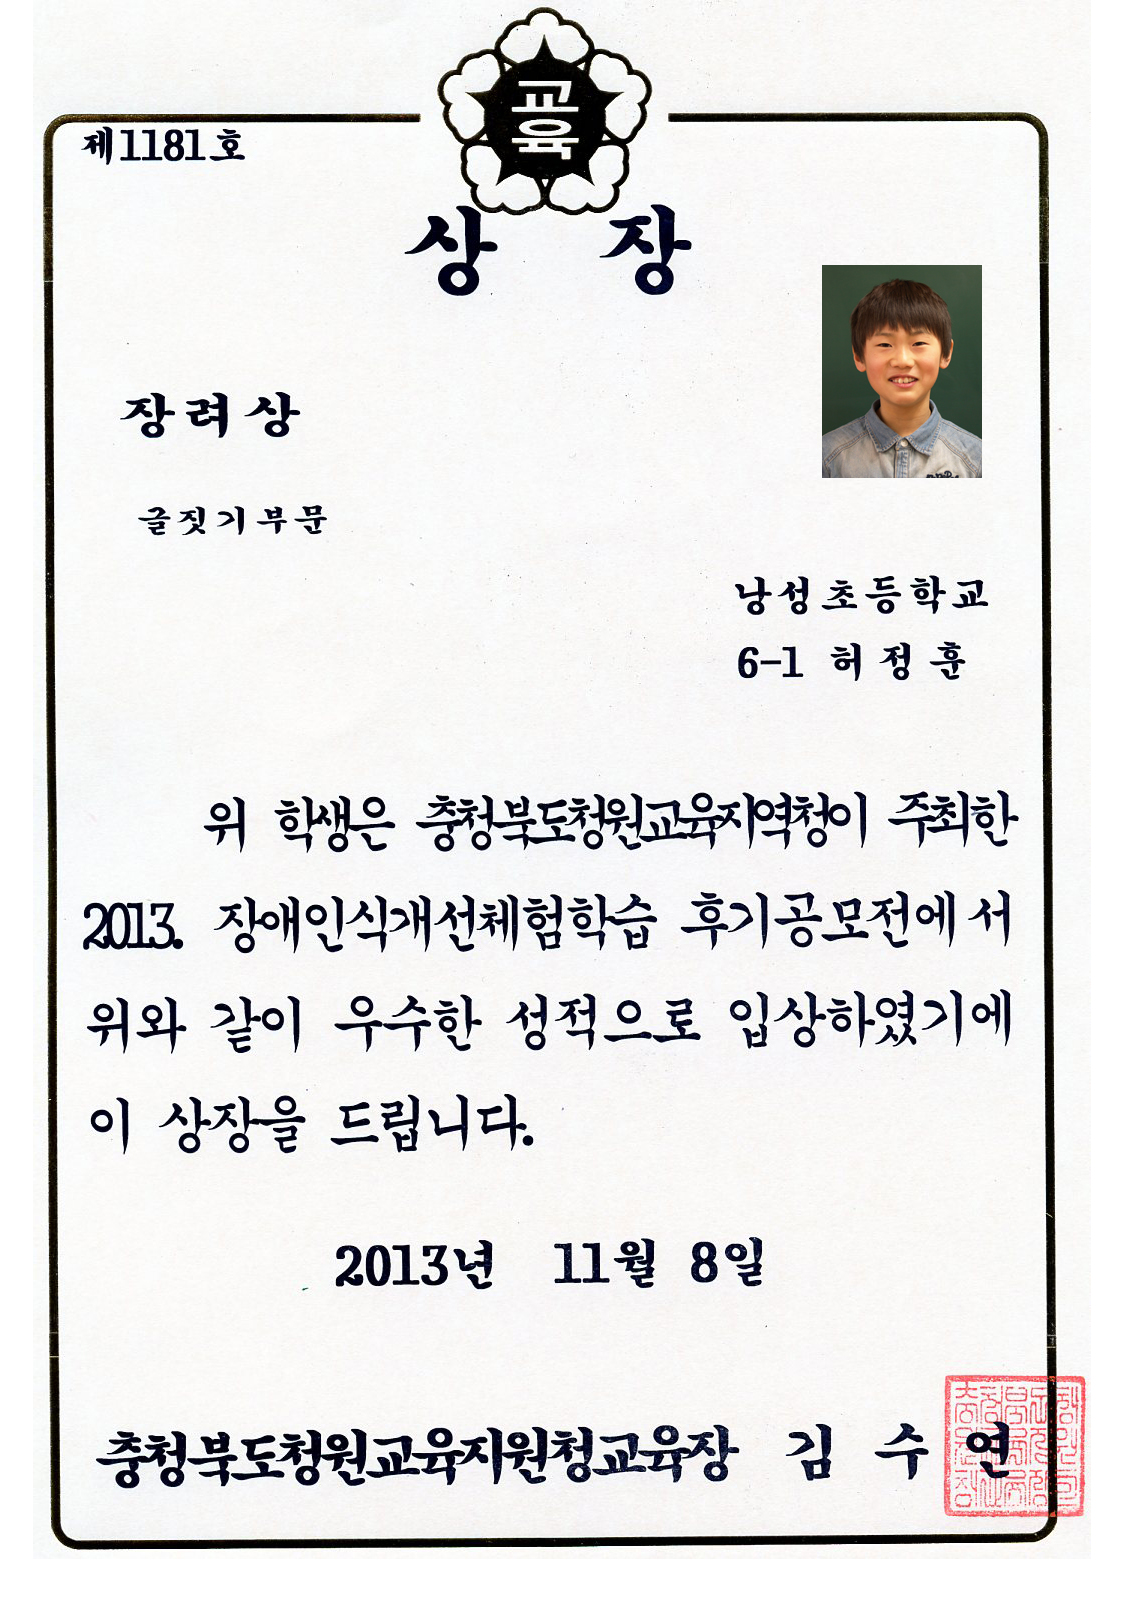 교육
제1181호
상 장
장려상
글짓기부문
낭성초등학교
6-1 허정훈
위 학생은 충청북도청원교육지역청이 주최한
2013. 장애인식개선체험학습 후기공모전에서
위와 같이 우수한 성적으로 입상하였기에
이 상장을 드립니다.
2013년 11월 8일
충청북도청원교육지원청교육장 김수연